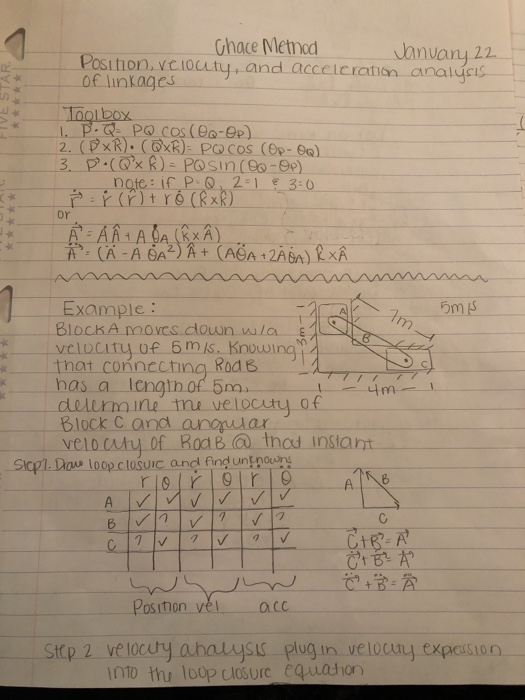 Chace Method
January 22
Position, velocity, and acceleration analysis
of linkages
Toolbox
1. P⃗·Q⃗= PQ cos(θQ-θP)
2. (P⃗xR̂)·(Q⃗xR̂)= PQ cos (θP-θQ)
3. P⃗·(Q⃗xR̂)= PQ sin(θQ-θP)
note: if P=Q, 2=1 & 3=0
ṙ⃗ = ṙ(r̂)+ rθ̇ (R̂xR̂)
or
Ȧ⃗= ȦÂ+ A θ̇A (k̂xÂ)
Ä⃗= (Ä-A θ̇A²)Â+ (Aθ̈A+2Ȧθ̇A) R̂xÂ
Example:
Block A moves down w/a
velocity of 5m/s. Knowing
that connecting Rod B
has a length of 5m,
determine the velocity of
Block C and angular
velocity of Rod B @ that instant
A
B
C
7m
5m/s
3m
4m
Step 1. Draw loop closure and find unknowns
r θ ṙ θ̇ r̈ θ̈
A ✓ ✓ ✓ ✓ ✓ ✓
B ✓ ? ✓ ? ✓ ?
C ? ✓ ? ✓ ? ✓
Position vel acc
A B
C
C⃗+B⃗=A⃗
Ċ⃗+Ḃ⃗=Ȧ⃗
C̈⃗+B̈⃗=Ä⃗
Step 2 velocity analysis plug in velocity expession
into the loop closure equation
FIVE STAR